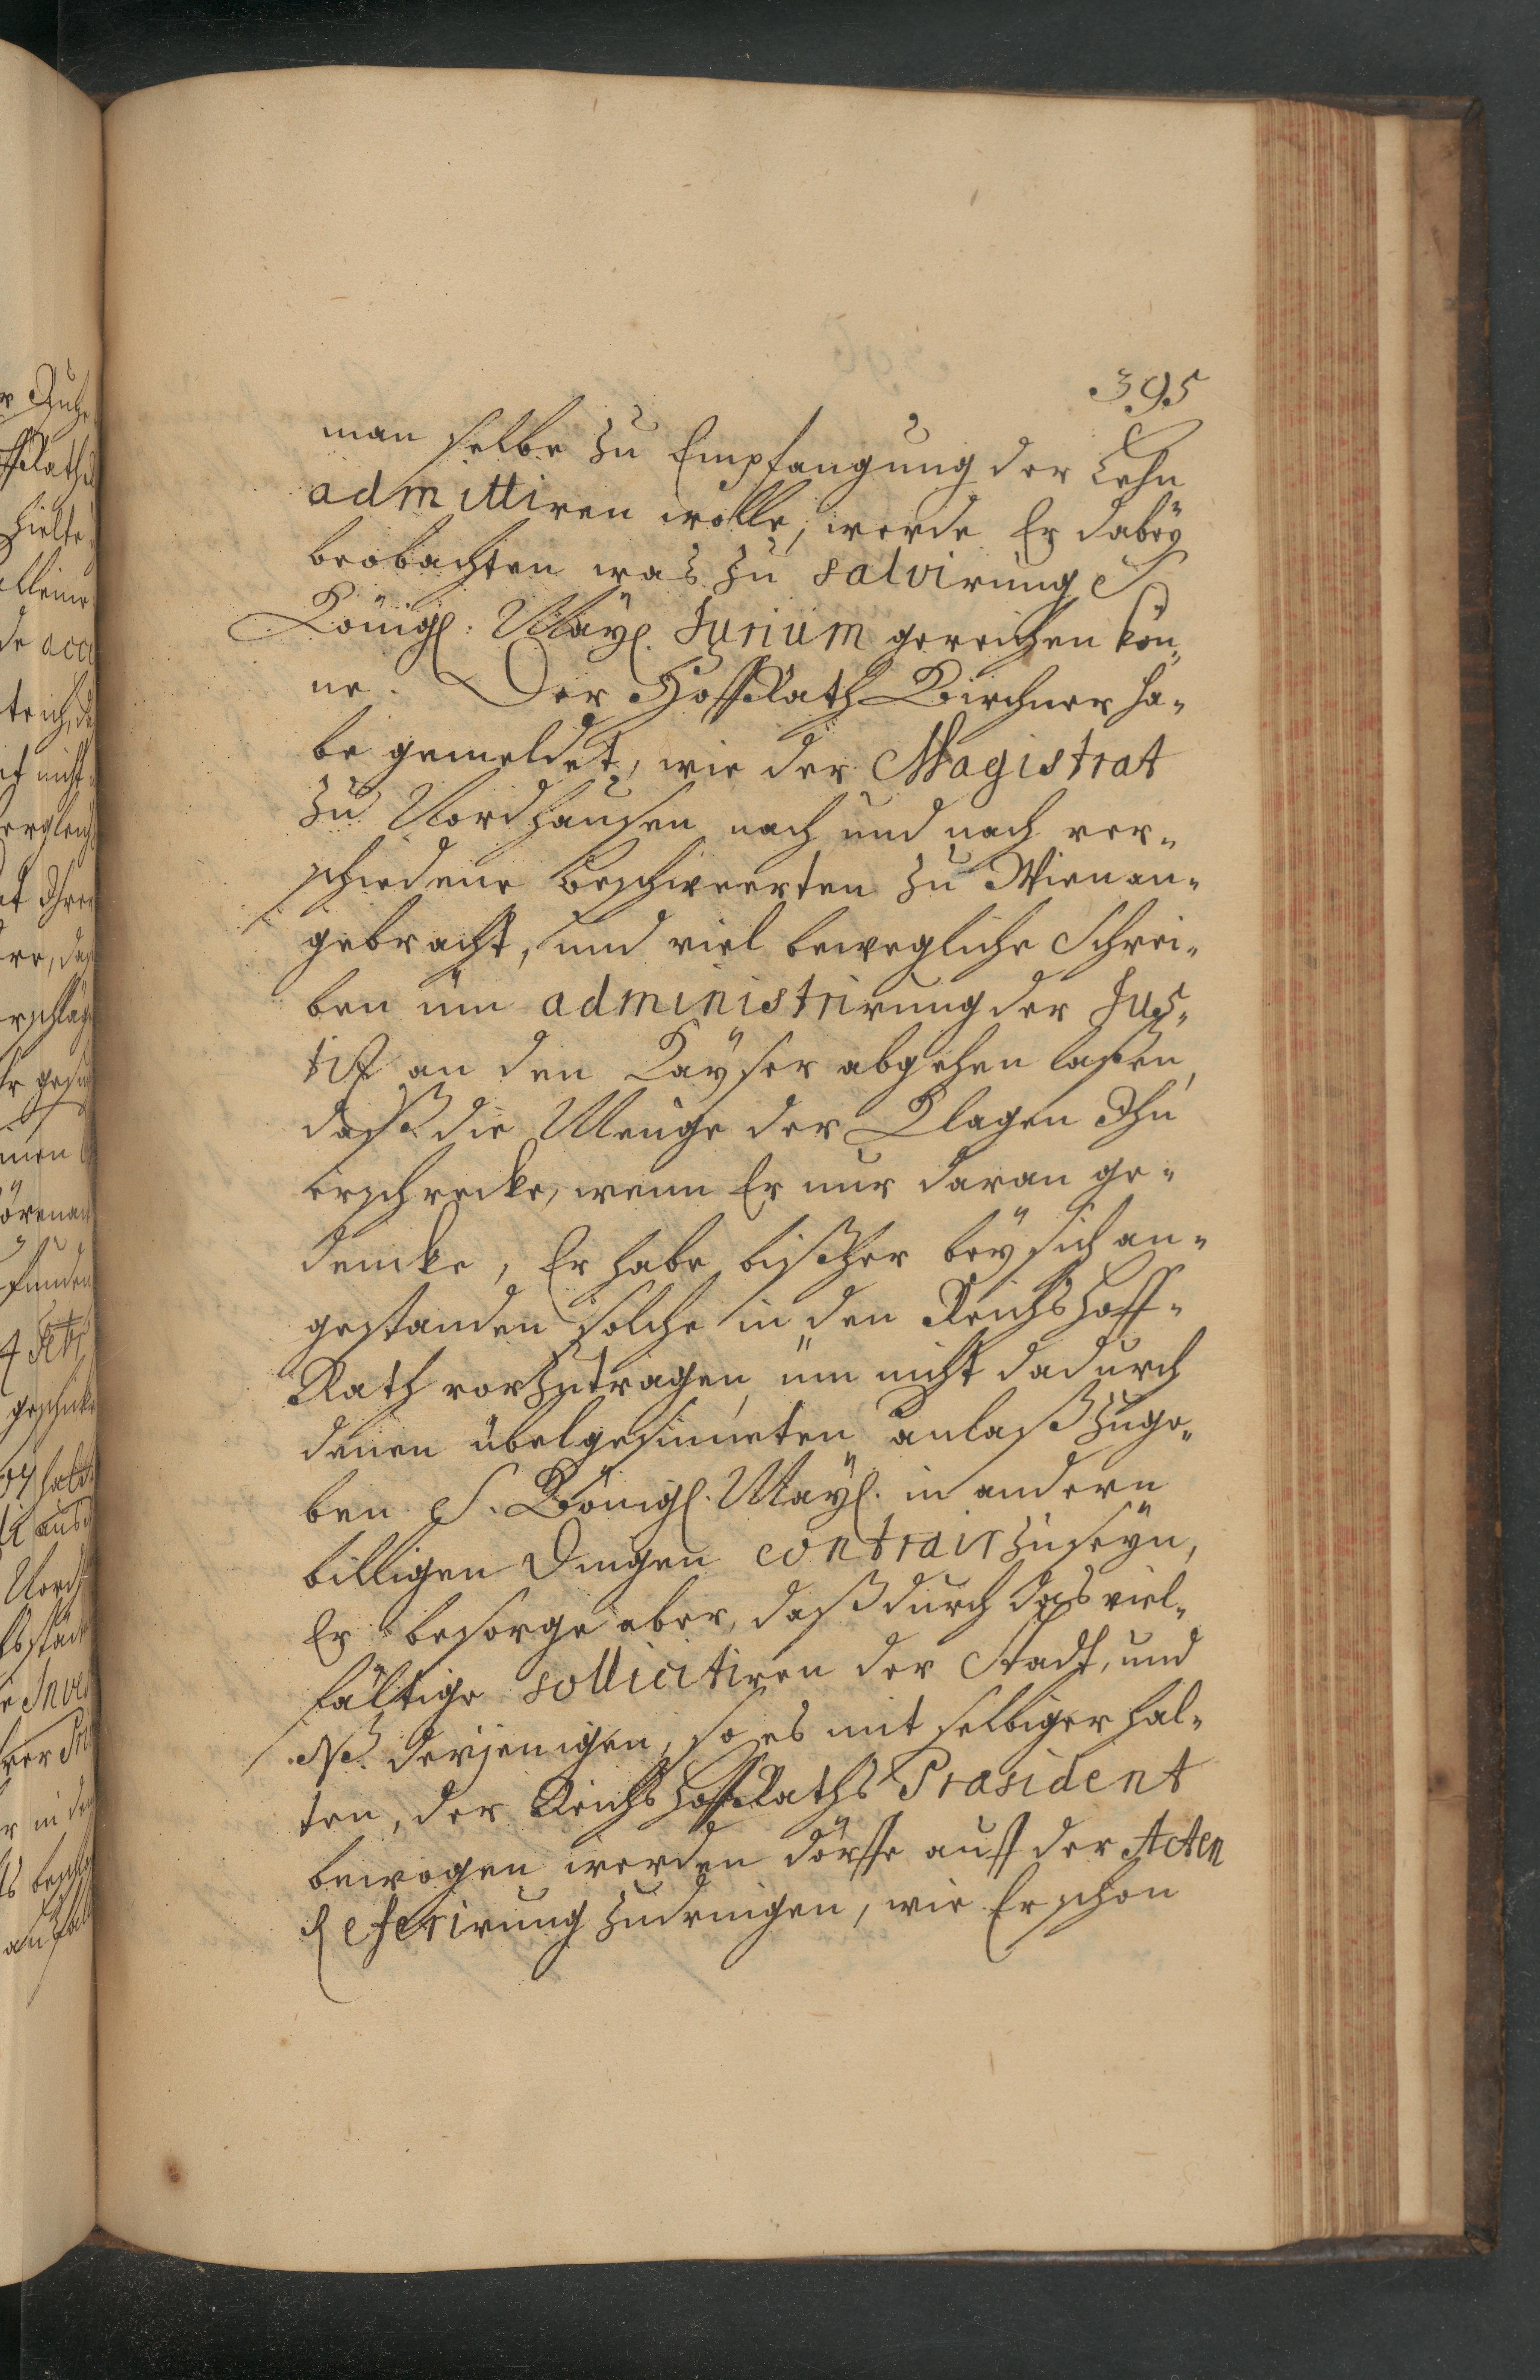 395
man selbe zu Empfangung der Lehn
admittiren wolle, werde Er dabeÿ
beobachten was zu salvirung S.
Königl. Maÿl. Jurium gereichen kön„
ne. Der HoffRath Kirchner ha„
be gemeldet, wie der Magistrat
zu Nordhausen nach und nach ver„
schiedene Beschweerten zu Wien an„
gebracht, und viel bewegliche Schrei„
ben üm administrirung der Jus„
tiz an den Kaÿser abgehen laßen,
daß die Menge der Klagen Ihn
erschrecke, wenn Er nur daran ge„
dencke, Er habe bißher beÿ sich an„
gestanden solche in den Reichshoff„
Rath vorzutragen, üm nicht dadurch
denen übelgesinneten anlaß zuge„
ben S. Königl. Maÿl. in andern
billigen Dingen contrair zuseÿn,
Er besorge aber, daß durch das viel„
fältige sollicitiren der Stadt, und
derjenigen, so es mit selbiger hal„
ten, der ReichsHoffRaths Præsident
bewogen werden dörffe auff der Acten
Referirung zudringen, wie Er schon